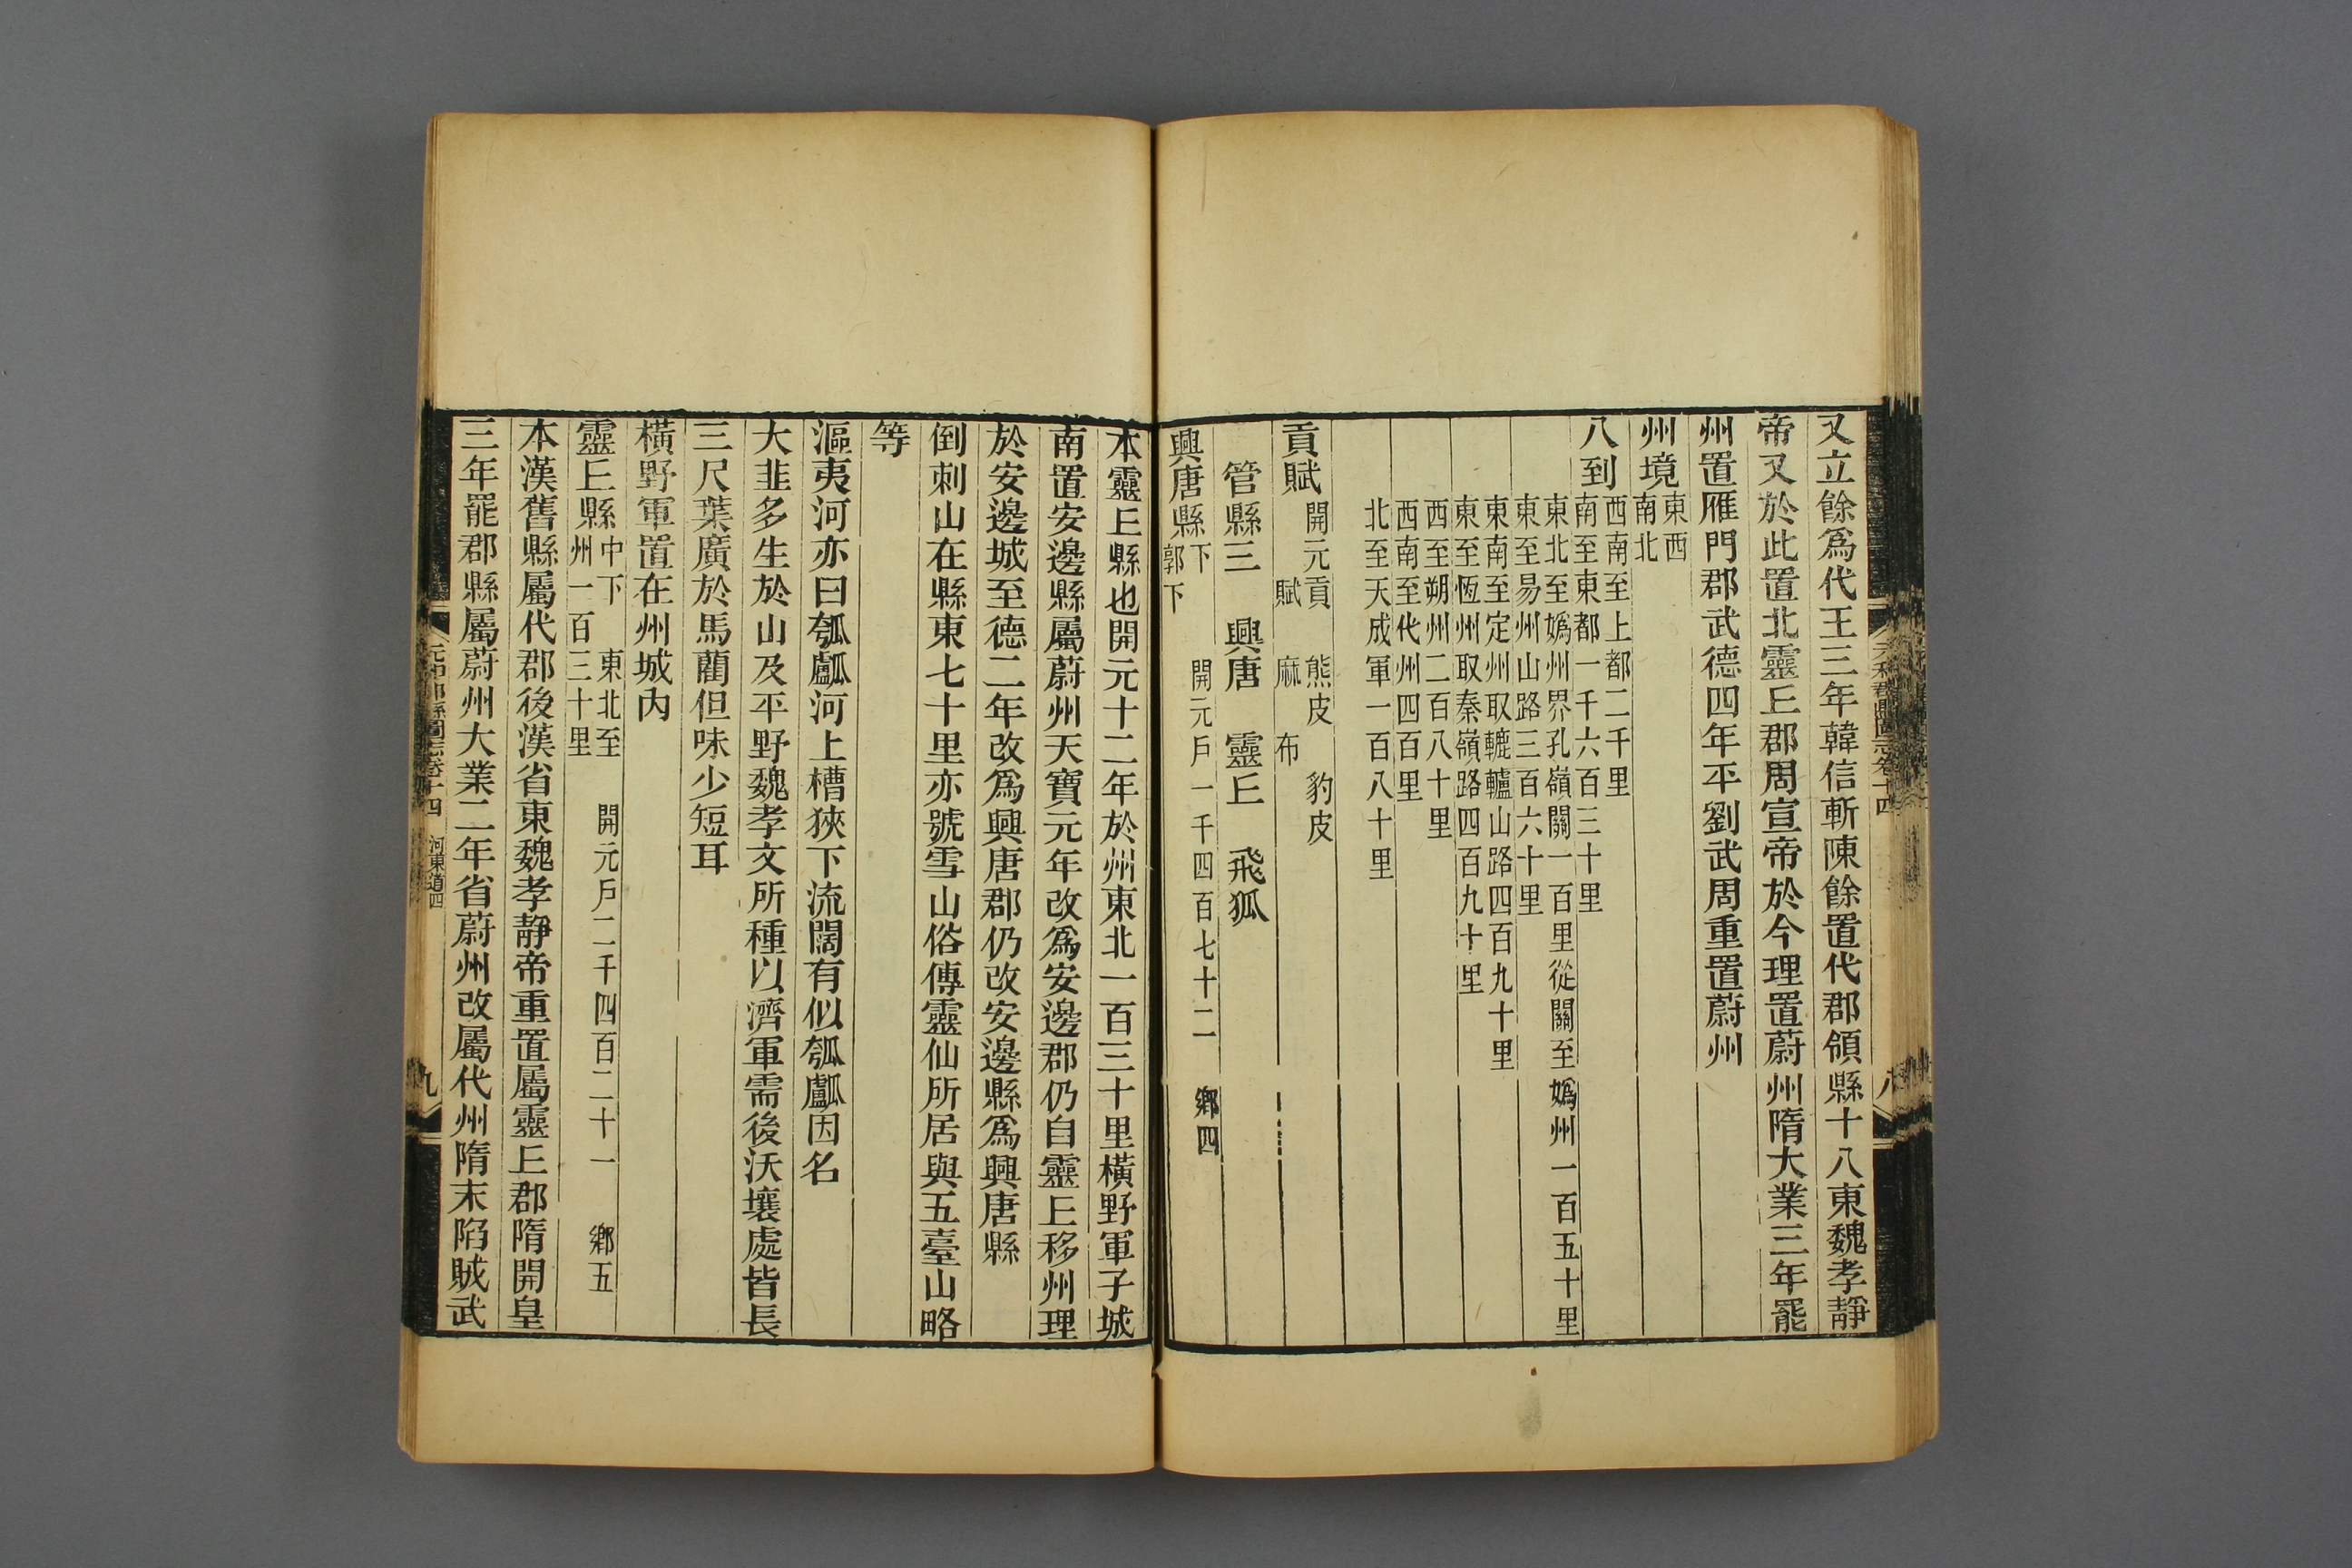 又立餘爲代王三年韓信斬陳餘置代郡領縣十八東魏孝靜
帝又於此置北靈丘郡周宣帝於今理置蔚州隋大業三年罷
州置雁門郡武德四年平劉武周重置蔚州
州境東西
南北
八到西南至上都二千里
南至東都一千六百三十里
東北至嬀州界孔嶺關一百里從關至嬀州一百五十里
東至易州山路三百六十里
東南至定州取轆轤山路四百九十里
東至恆州取秦嶺路四百九十里
西至朔州二百八十里
西南至代州四百里
北至天成軍一百八十里
貢賦開元貢 熊皮 豹皮
賦 麻 布
管縣三 興唐 靈丘 飛狐
興唐縣下 開元戶一千四百七十二 鄉四
郭下
本靈丘縣也開元十二年於州東北一百三十里橫野軍子城
南置安邊縣屬蔚州天寶元年改爲安邊郡仍自靈丘移州理
於安邊城至德二年改爲興唐郡仍改安邊縣爲興唐縣
倒刺山在縣東七十里亦號雪山俗傳靈仙所居與五臺山略
等
漚夷河亦曰瓠𤬛河上槽狹下流闊有似瓠𤬛因名
大韭多生於山及平野魏孝文所種以濟軍需後沃壤處皆長
三尺葉廣於馬藺但味少短耳
橫野軍置在州城內
靈丘縣中下 東北至 開元戶二千四百二十一 鄉五
州一百三十里
本漢舊縣屬代郡後漢省東魏孝靜帝重置屬靈丘郡隋開皇
三年罷郡縣屬蔚州大業二年省蔚州改屬代州隋末陷賊武
元和郡縣圖志卷十四 八
元和郡縣圖志卷十四 河東道四 九